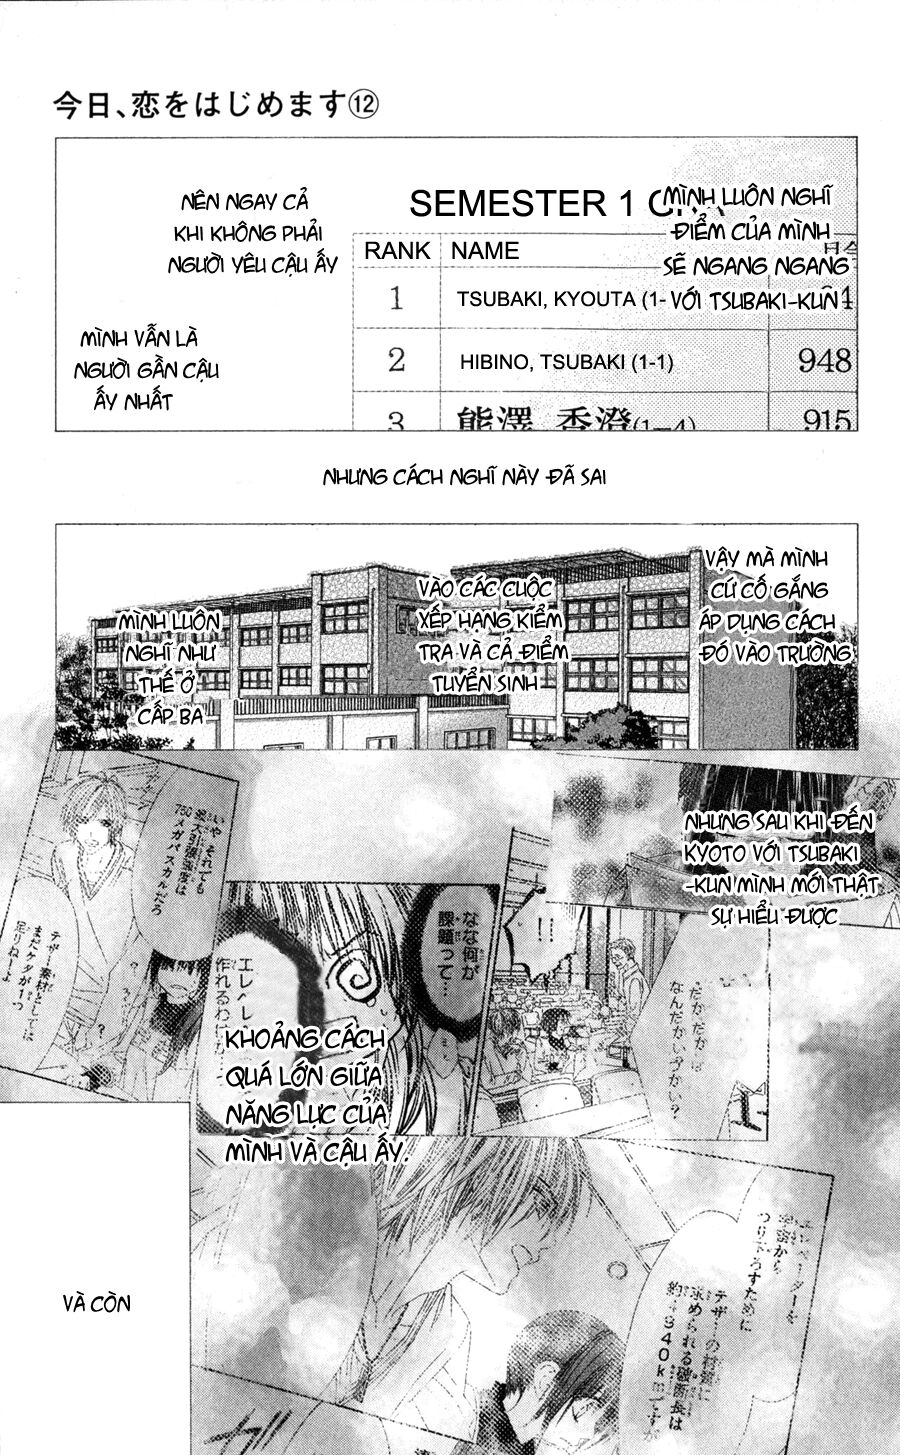 今日、恋をはじめます⑫
MÌNH LUÔN NGHĨ
ĐIỂM CỦA MÌNH
SẼ NGANG NGANG
VỚI TSUBAKI-KUN
NÊN NGAY CẢ
KHI KHÔNG PHẢI
NGƯỜI YÊU CẬU ẤY
MÌNH VẪN LÀ
NGƯỜI GẦN CẬU
ẤY NHẤT
SEMESTER 1
RANK NAME
1 TSUBAKI, KYOUTA (1-
2 HIBINO, TSUBAKI (1-1) 948
3 熊澤 香澄(1-4) 915
NHƯNG CÁCH NGHĨ NÀY ĐÃ SAI
VẬY MÀ MÌNH
CỨ CỐ GẮNG
ÁP DỤNG CÁCH
ĐÓ VÀO TRƯỜNG
VÀO CÁC CUỘC
XẾP HẠNG KIỂM
TRA VÀ CẢ ĐIỂM
TUYỂN SINH
MÌNH LUÔN
NGHĨ NHƯ
THẾ Ở
CẤP BA
NHƯNG SAU KHI ĐẾN
KYOTO VỚI TSUBAKI
-KUN MÌNH MỚI THẬT
SỰ HIỂU ĐƯỢC
!!
だか、だか、ば
なんだかいづかい?
なな何が
課題って…
エレベ
作れるわ
いや それでも
最大引張強度は
780メガパスカルだろ
テザー素材としては
まだケタが1つ
足りねーよ
KHOẢNG CÁCH
QUÁ LỚN GIỮA
NĂNG LỰC CỦA
MÌNH VÀ CẬU ẤY.
VÀ CÒN
エレベーターを
宇宙から
つり下ろすために
テザーの材質に
求められる破断長は
約4940kmですが